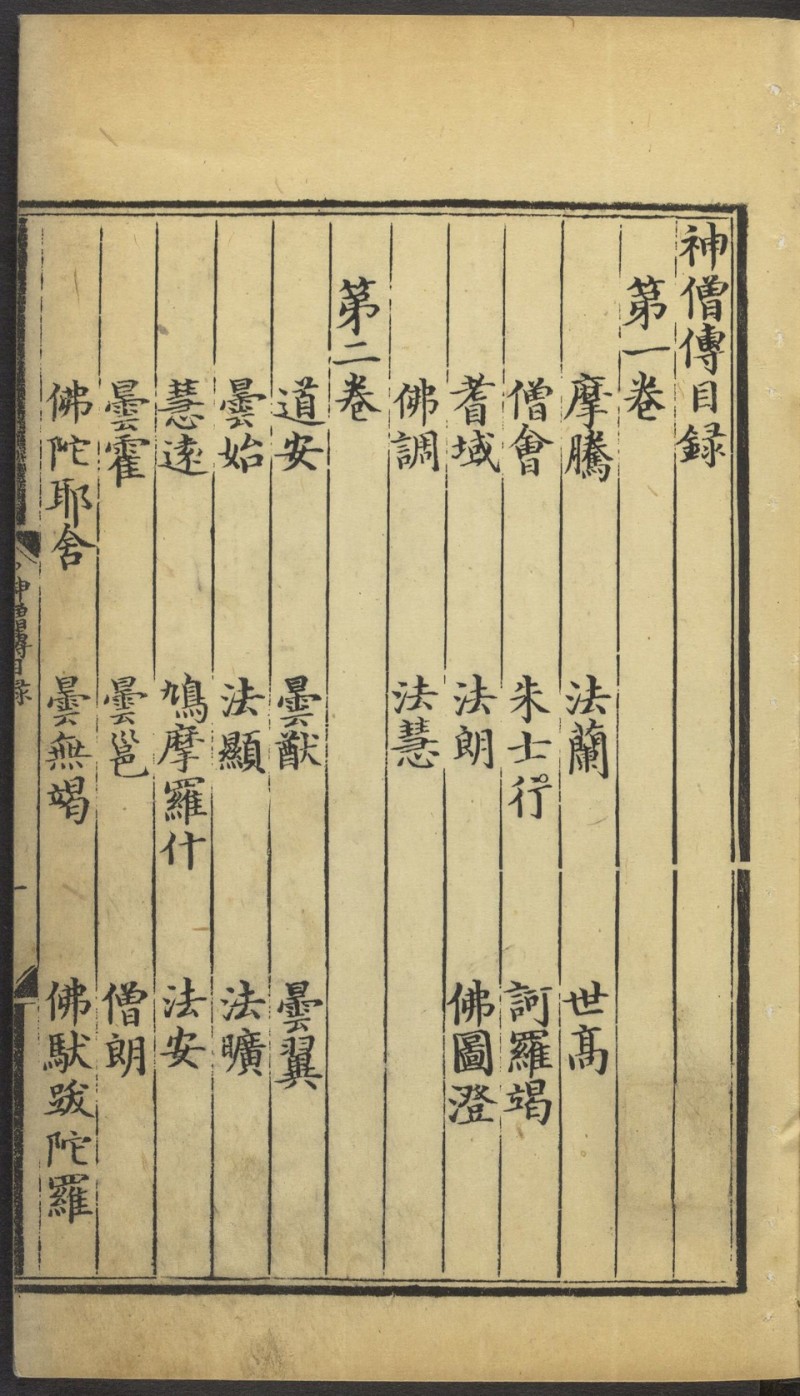 神僧傳目録
第一卷
摩騰 法蘭 世髙
僧會 朱士行 訶羅竭
耆域 法朗 佛圖澄
佛調 法慧
第二卷
道安 曇猷 曇翼
曇始 法顯 法曠
慧逺 鳩摩羅什 法安
曇霍 曇邕 僧朗
佛陀耶舍 曇無竭 佛馱跋陀羅
神僧傳目録
一